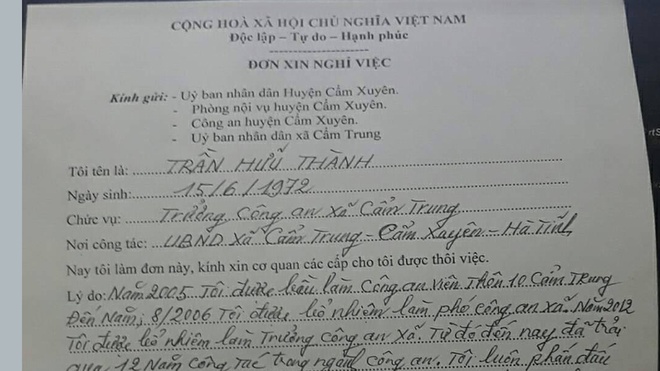 CỘNG HOÀ XÃ HỘI CHỦ NGHĨA VIỆT NAM
Độc lập – Tự do – Hạnh phúc
ĐƠN XIN NGHỈ VIỆC
Kính gửi: - Uỷ ban nhân dân Huyện Cẩm Xuyên.
- Phòng nội vụ huyện Cẩm Xuyên.
- Công an huyện Cẩm Xuyên.
- Uỷ ban nhân dân xã Cẩm Trung
Tôi tên là: TRẦN HỮU THÀNH
Ngày sinh: 15/6/1972
Chức vụ: Trưởng Công an Xã Cẩm Trung
Nơi công tác: UBND Xã Cẩm Trung - Cẩm Xuyên - Hà Tĩnh
Nay tôi làm đơn này, kính xin cơ quan các cấp cho tôi được thôi việc.
Lý do: Năm 2005 Tôi được bầu làm Công an Viên Thôn 10 Cẩm Trung
Đến Năm; 8/2006 Tôi được bổ nhiệm làm phó công an xã. Năm 2012
Tôi được bổ nhiệm làm Trưởng Công an Xã. Từ đó đến nay đã trải
qua 12 Năm Công Tác trong ngành công an. Tôi luôn phấn đấu